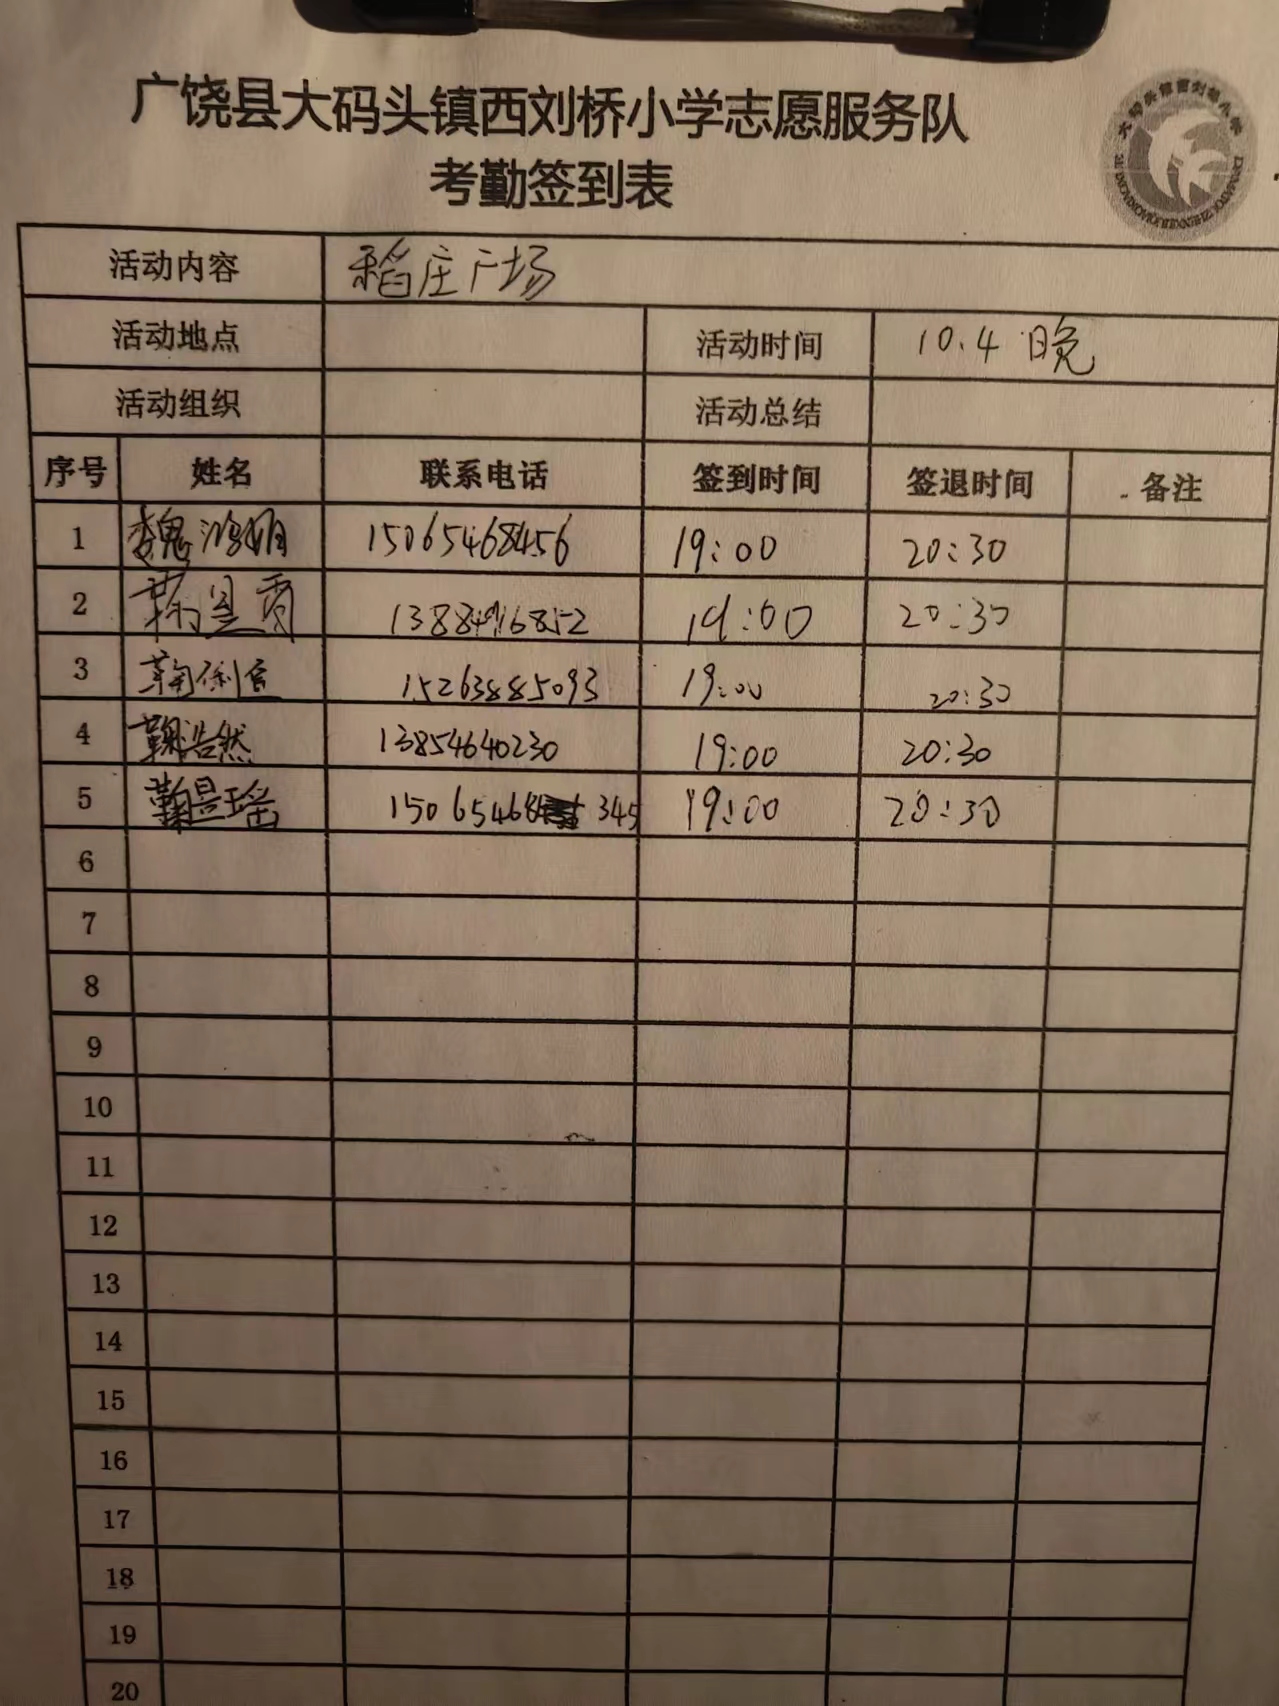 广饶县大码头镇西刘桥小学志愿服务队
考勤签到表
活动内容 稻庄广场
活动地点 活动时间 10.4 晚
活动组织 活动总结
序号 姓名 联系电话 签到时间 签退时间 备注
1 魏鸿娟 15065468456 19:00 20:30
2 13884916852 19:00 20:30
3 15263885093 19:00 20:30
4 鞠浩然 13854640230 19:00 20:30
5 鞠昙瑶 15065468 345 19:00 20:30
6
7
8
9
10
11
12
13
14
15
16
17
18
19
20